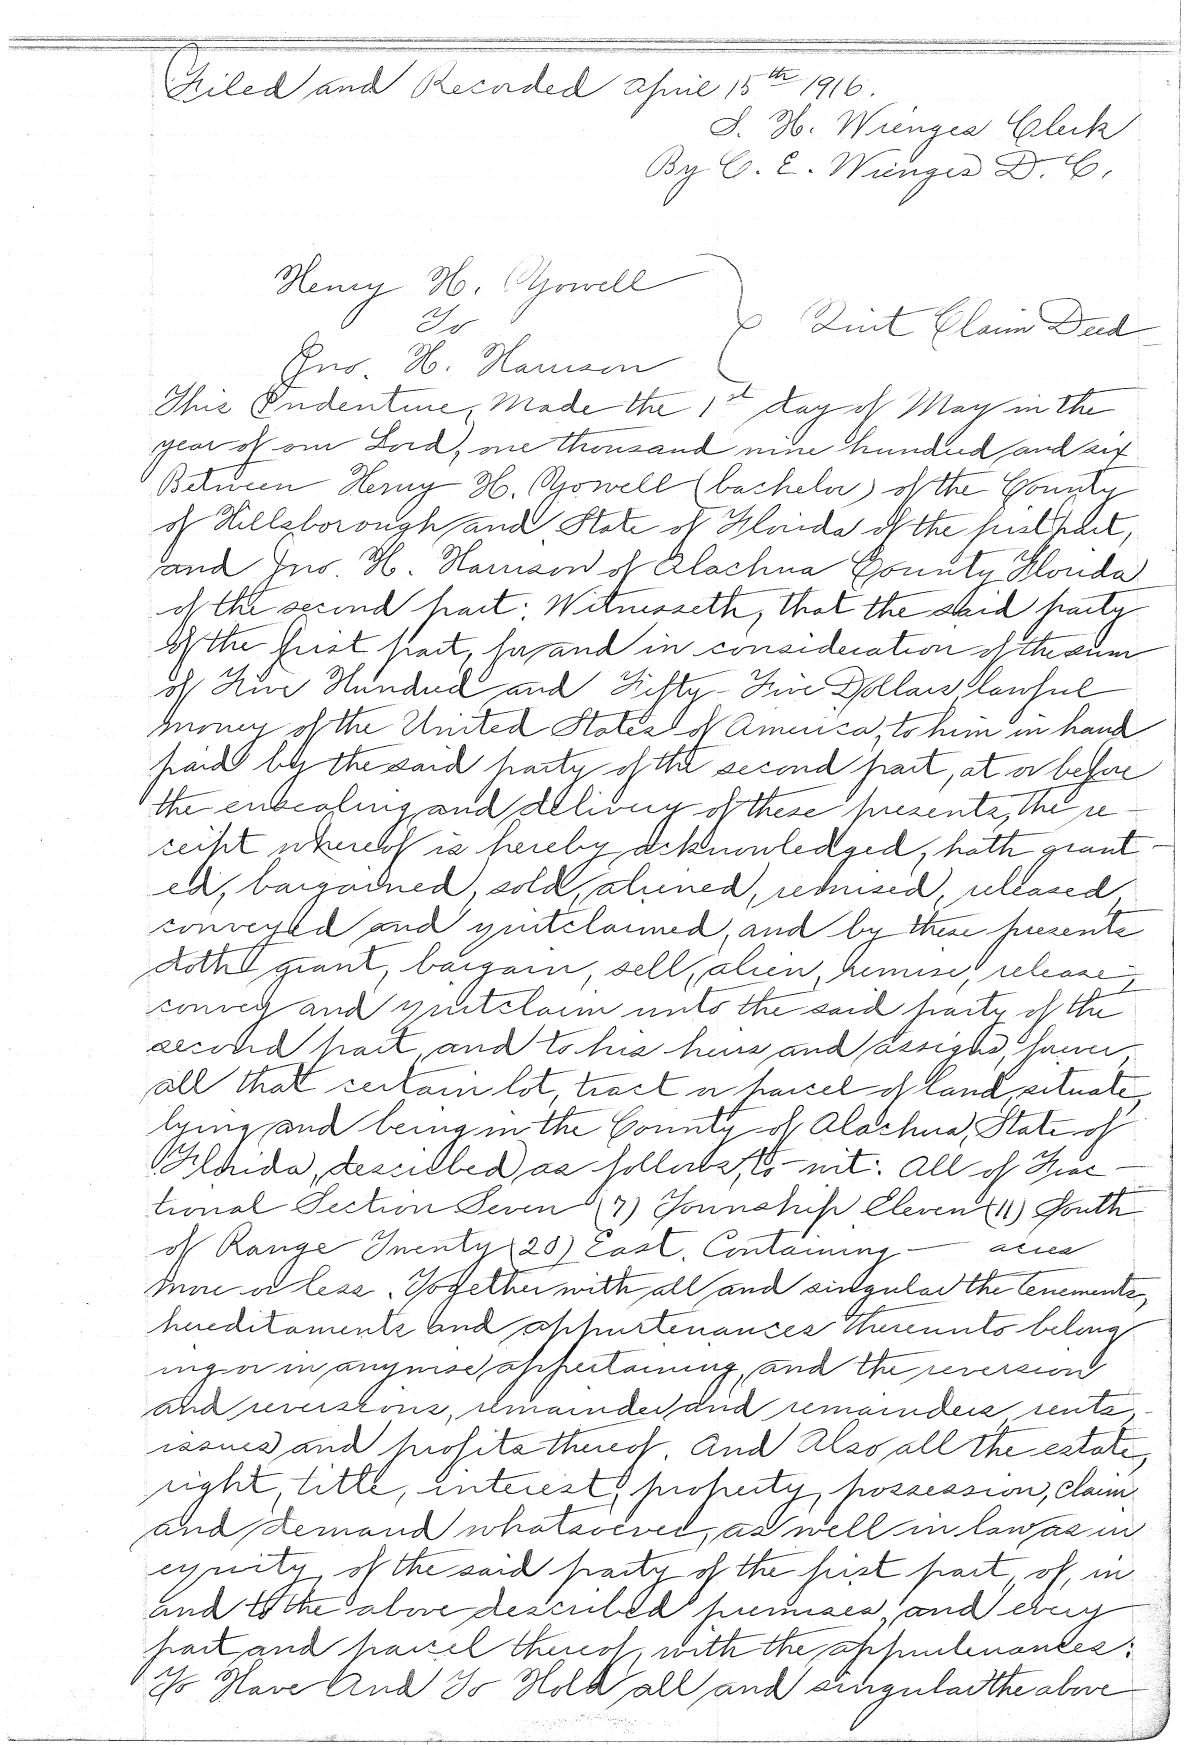 Filed and Recorded April 15th 1916.
S. H. Wienges Clerk
By C. E. Wienges D. C.
Henry H. Yowell
To
Quit Claim Deed
Jno. H. Harrison
This Indenture, Made the 1st day of May in the
year of our Lord, one thousand nine hundred and six
Between Henry H. Yowell (bachelor) of the County
of Hillsborough and State of Florida of the first part,
and Jno. H. Harrison of Alachua County Florida
of the second part: Witnesseth, that the said party
of the first part, for and in consideration of the sum
of Five Hundred and Fifty-Five Dollars lawful
money of the United States of America, to him in hand
paid by the said party of the second part, at or before
the ensealing and delivery of these presents, the re-
ceipt whereof is hereby acknowledged, hath grant-
ed, bargained, sold, aliened, remised, released,
conveyed and quitclaimed, and by these presents
doth grant, bargain, sell, alien, remise, release,
convey and quitclaim unto the said party of the
second part, and to his heirs and assigns, forever,
all that certain lot, tract or parcel of land, situate,
lying and being in the County of Alachua, State of
Florida, described as follows, to-wit: All of Frac-
tional Section Seven (7) Township Eleven (11) South
of Range Twenty (20) East. Containing — acres
more or less. Together with all and singular the tenements,
hereditaments and appurtenances thereunto belong
ing or in anywise appertaining, and the reversion
and reversions, remainder and remainders, rents,
issues and profits thereof. And Also all the estate,
right, title, interest, property, possession, claim
and demand whatsoever, as well in law as in
equity, of the said party of the first part, of, in
and to the above described premises, and every
part and parcel thereof, with the appurtenances:
To Have And To Hold all and singular the above